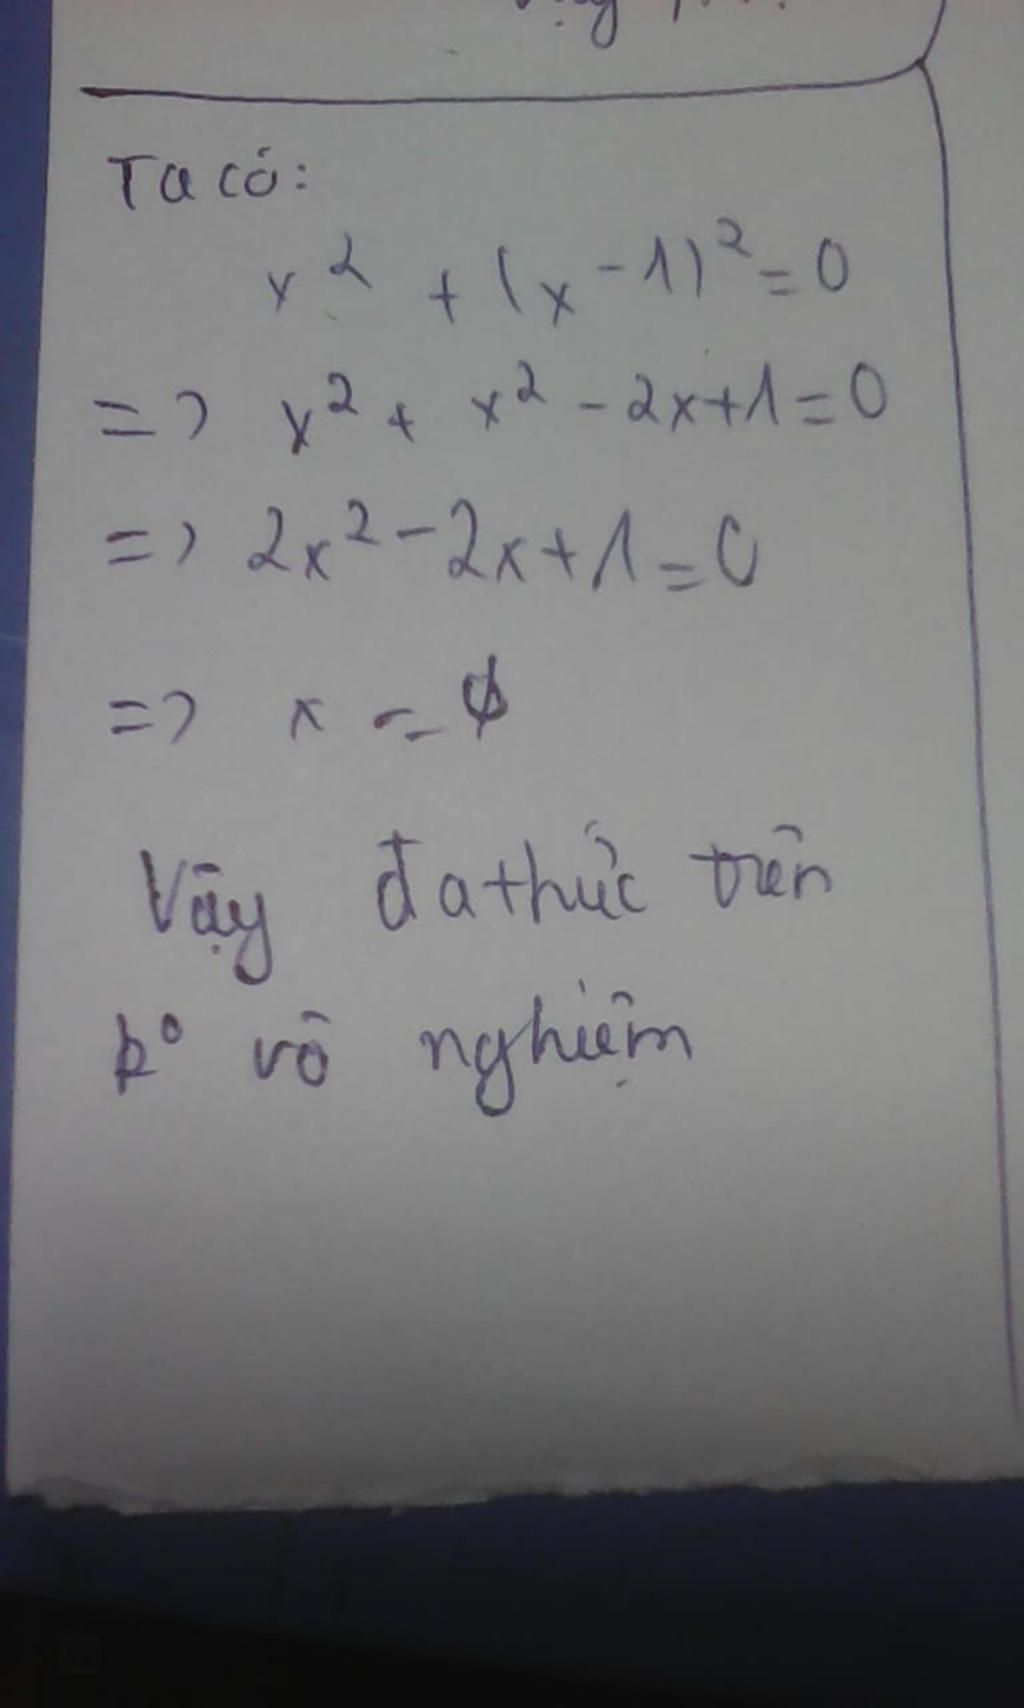 Ta có:
x² + (x - 1)² = 0
=> x² + x² - 2x + 1 = 0
=> 2x² - 2x + 1 = 0
=> x = ϕ
Vậy đa thức trên
k° vô nghiệm